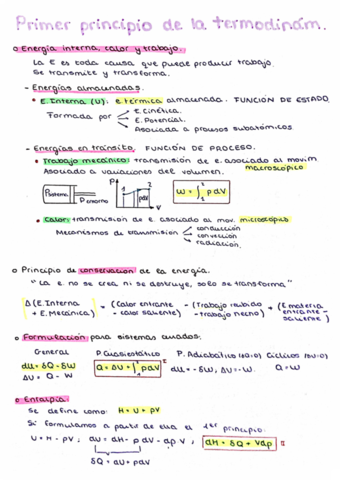 Primer principio de la termodinám.
Energía interna, calor y trabajo.
La E es toda causa que puede producir trabajo.
Se transmite y transforma.
- Energías almacenadas.
• E. Interna (U): e. térmica almacenada. FUNCIÓN DE ESTADO
Formada por
E. Cinética.
E. Potencial.
Asociada a procesos subatómicos.
- Energías en tránsito. FUNCIÓN DE PROCESO.
• Trabajo mecánico: transmisión de e. asociado al movim macroscópico
Asociado a variaciones del volumen.
Psistema
P entorno
P
1
2
pdV
V
W = ∫₁² p dV
• Calor: transmisión de e. asociado al mov. microscópico
Mecanismos de transmisión
conducción
convección
radiación.
Principio de conservación de la energía.
"La e. no se crea ni se destruye, solo se transforma"
Δ(E. Interna + E. Mecánica) = (Calor entrante - calor saliente) - (Trabajo recibido - trabajo hecho) + (E materia entrante - saliente)
Formulación: para sistemas cerrados.
General
P. Cuasiestático
P. Adiabático (δQ=0)
Cíclicos (ΔU=0)
dU = δQ - δW
ΔU = Q - W
Q = ΔU + ∫₁² p dV
dU = -δW, ΔU = -W.
Q = W
Entalpía:
Se define como: H = U + pV
Si formulamos a partir de ella el 1er principio:
U = H - pV; dU = dH - p dV - dp V;
dH = δQ + Vdp
δQ = dU + pdV